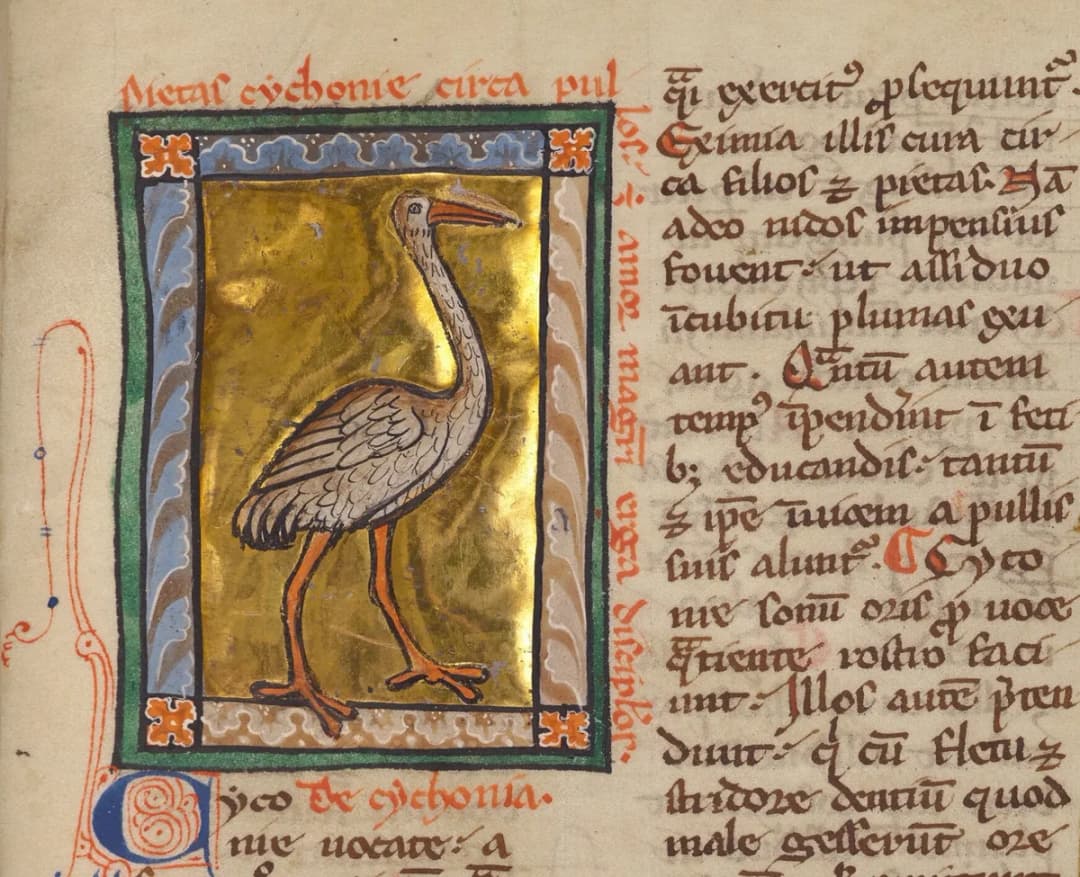 Pietas cychonie circa pul
los. ẽ amor magr̃i erga discipłos.
Cyco De cychonia.
nie uocate: a
q̃i exercit᷒ ꝓsequunt᷑.
Eximia illis cura cir
ca filios ⁊ pietas. Nã
adeo nidos impensius
fouent: ut assiduo
ĩcubitu plumas exu
ant. Qãntũ autem
temp᷒ ĩpendũt ĩ feti
b; educandis: tantũ
⁊ ip̃e ĩnuicem a pullis
suis alunt᷑. Cyco
nie sonũ oris ꝓ uoce
q̃tiente rostro faci
unt. Illos autẽ p̃ten
dunt: q̇ cũ fletu ⁊
stridore dentiũ quod
male gesserũt ore